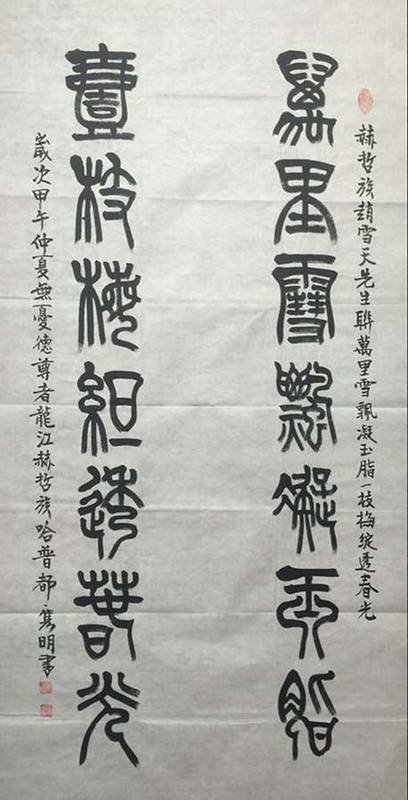 赫哲族趙雪天先生聯萬里雪飄凝玉脂一枝梅綻透春光
萬里雪飄凝玉脂
壹枝梅綻透春光
歲次甲午仲夏無憂德尊者龍江赫哲族哈普都雋明書